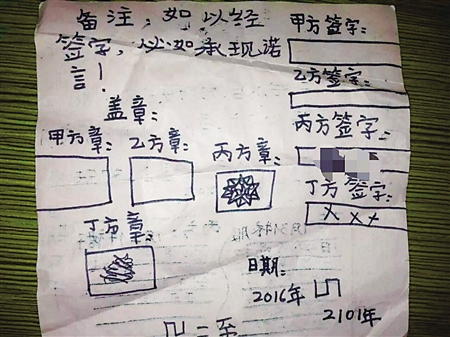 备注：如以经
签字，以如承现诺
言！
甲方签字：
乙方签字：
丙方签字：
丁方签字：
xxx
盖章：
甲方章：
乙方章：
丙方章：
丁方章：
日期：
2016年
2101年
二至